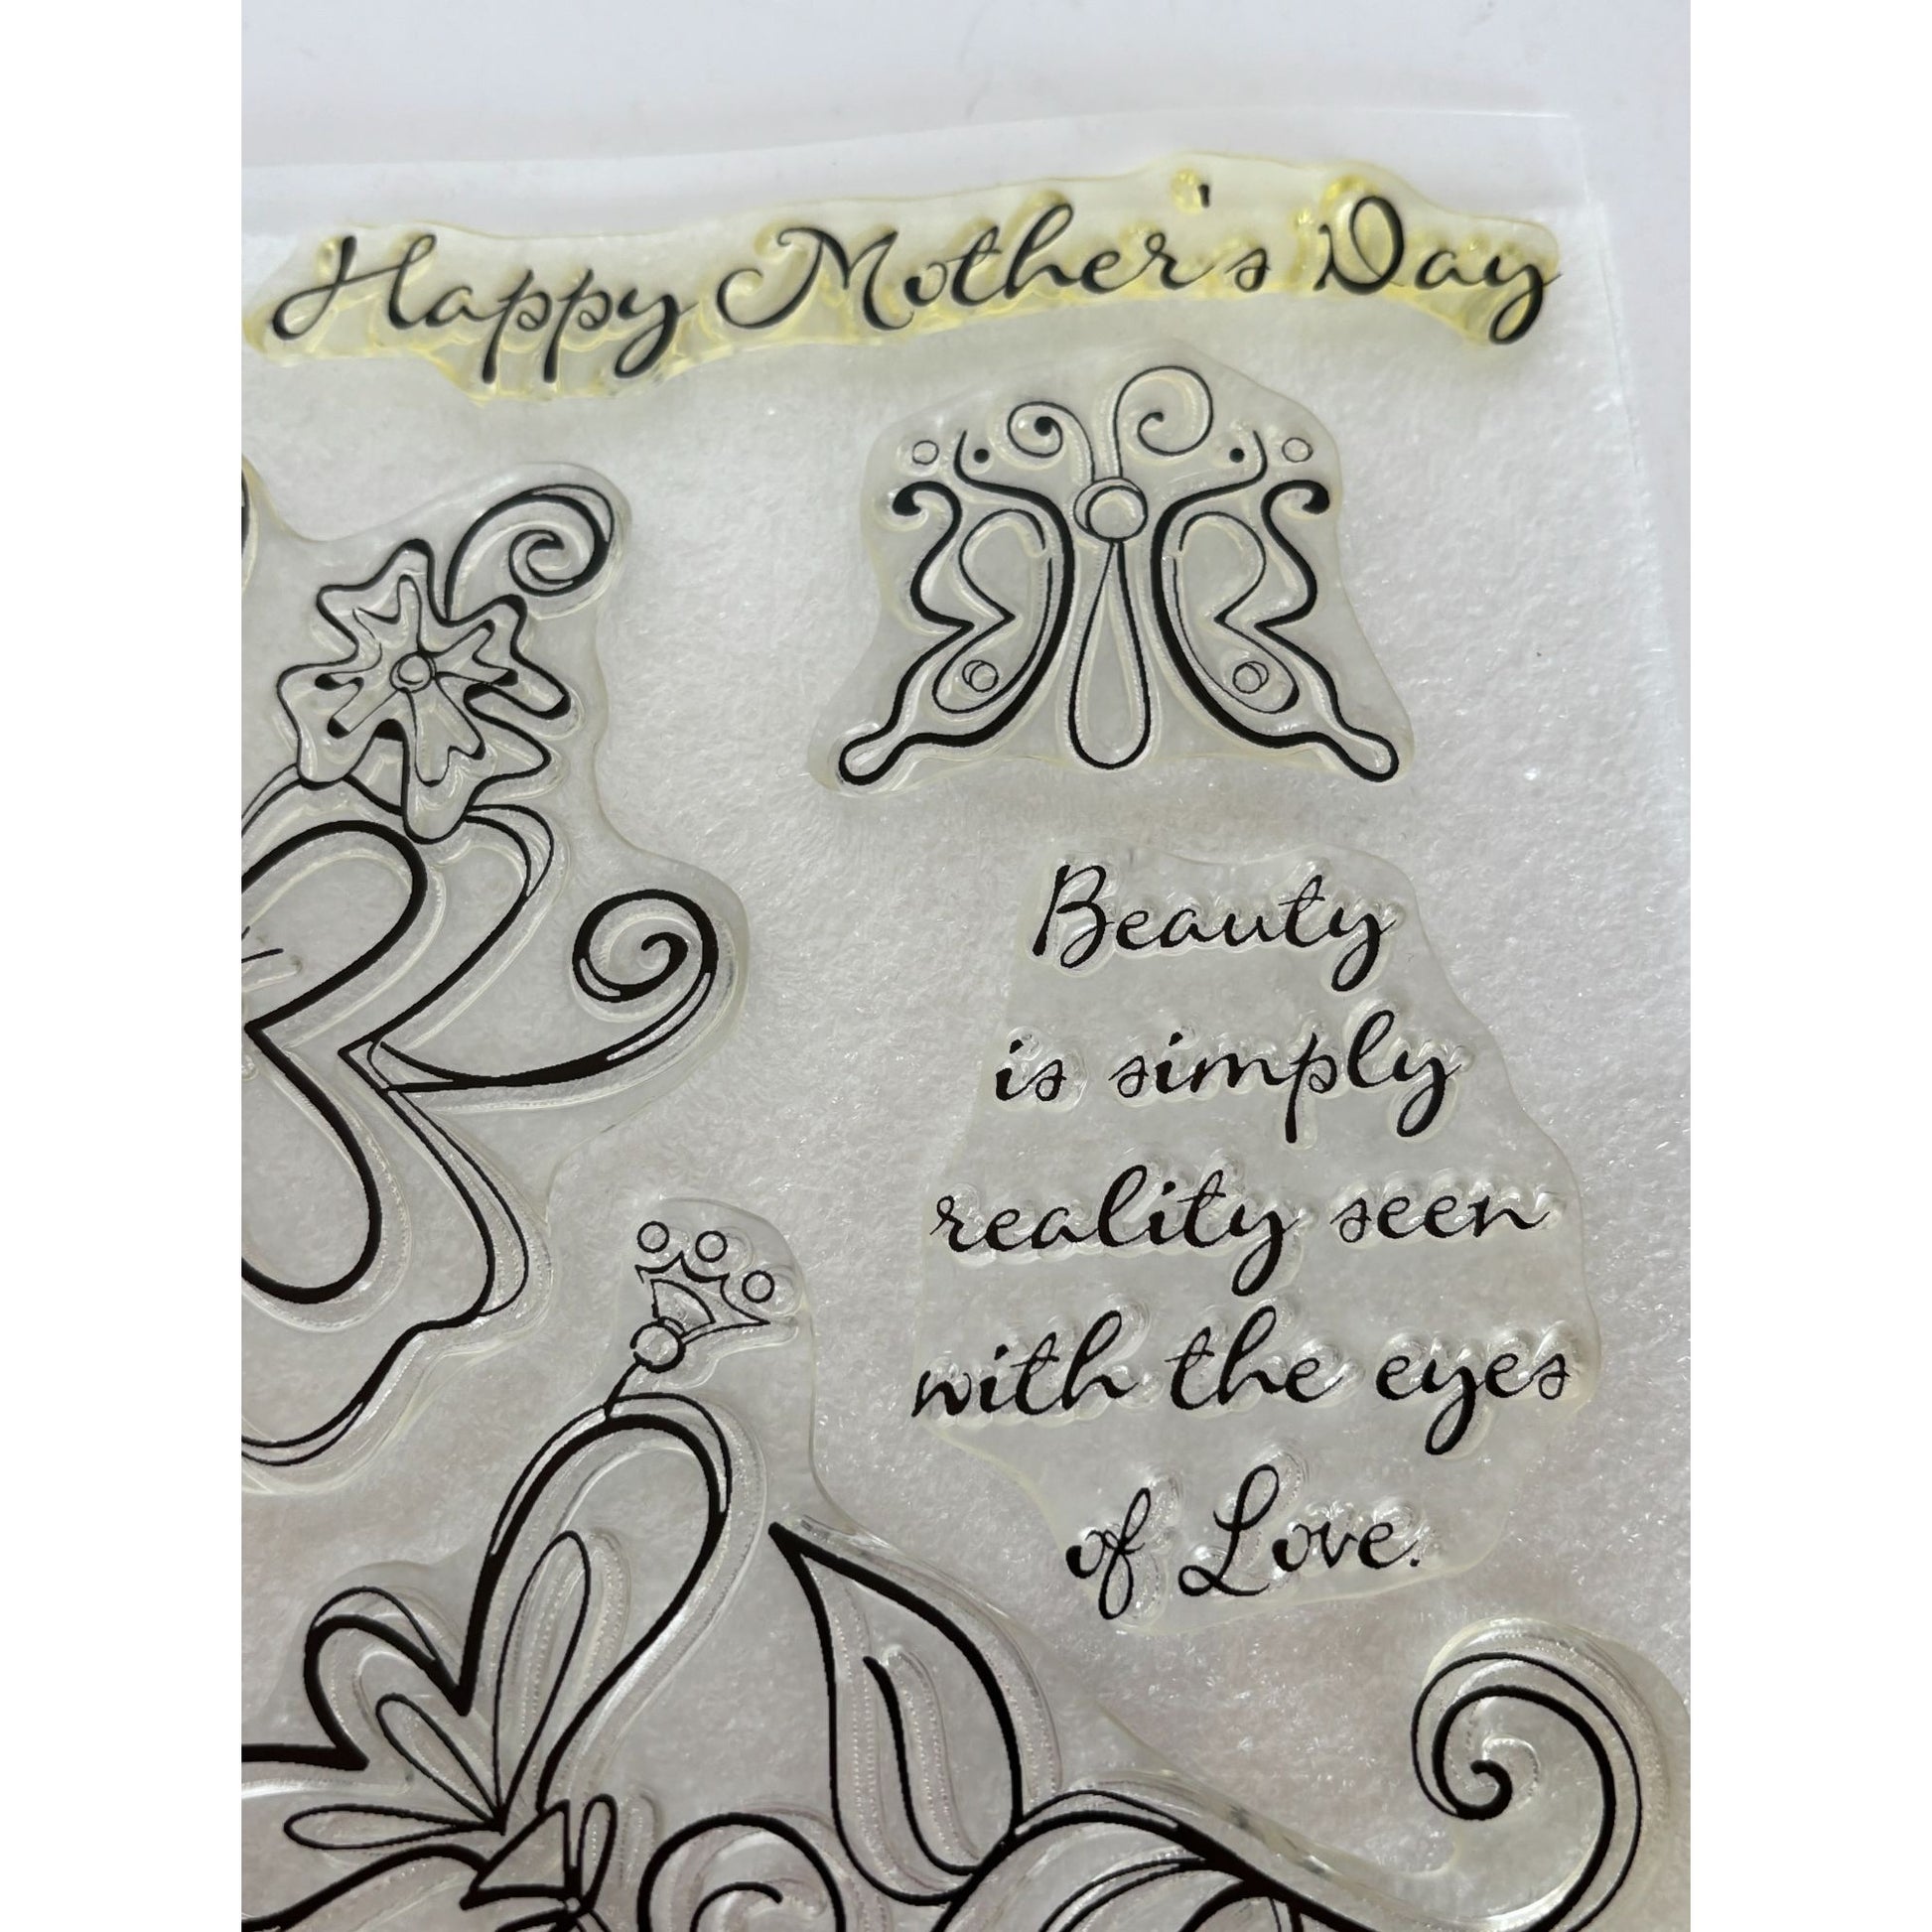 Happy Mother's Day
Beauty
is simply
reality seen
with the eyes
of Love.